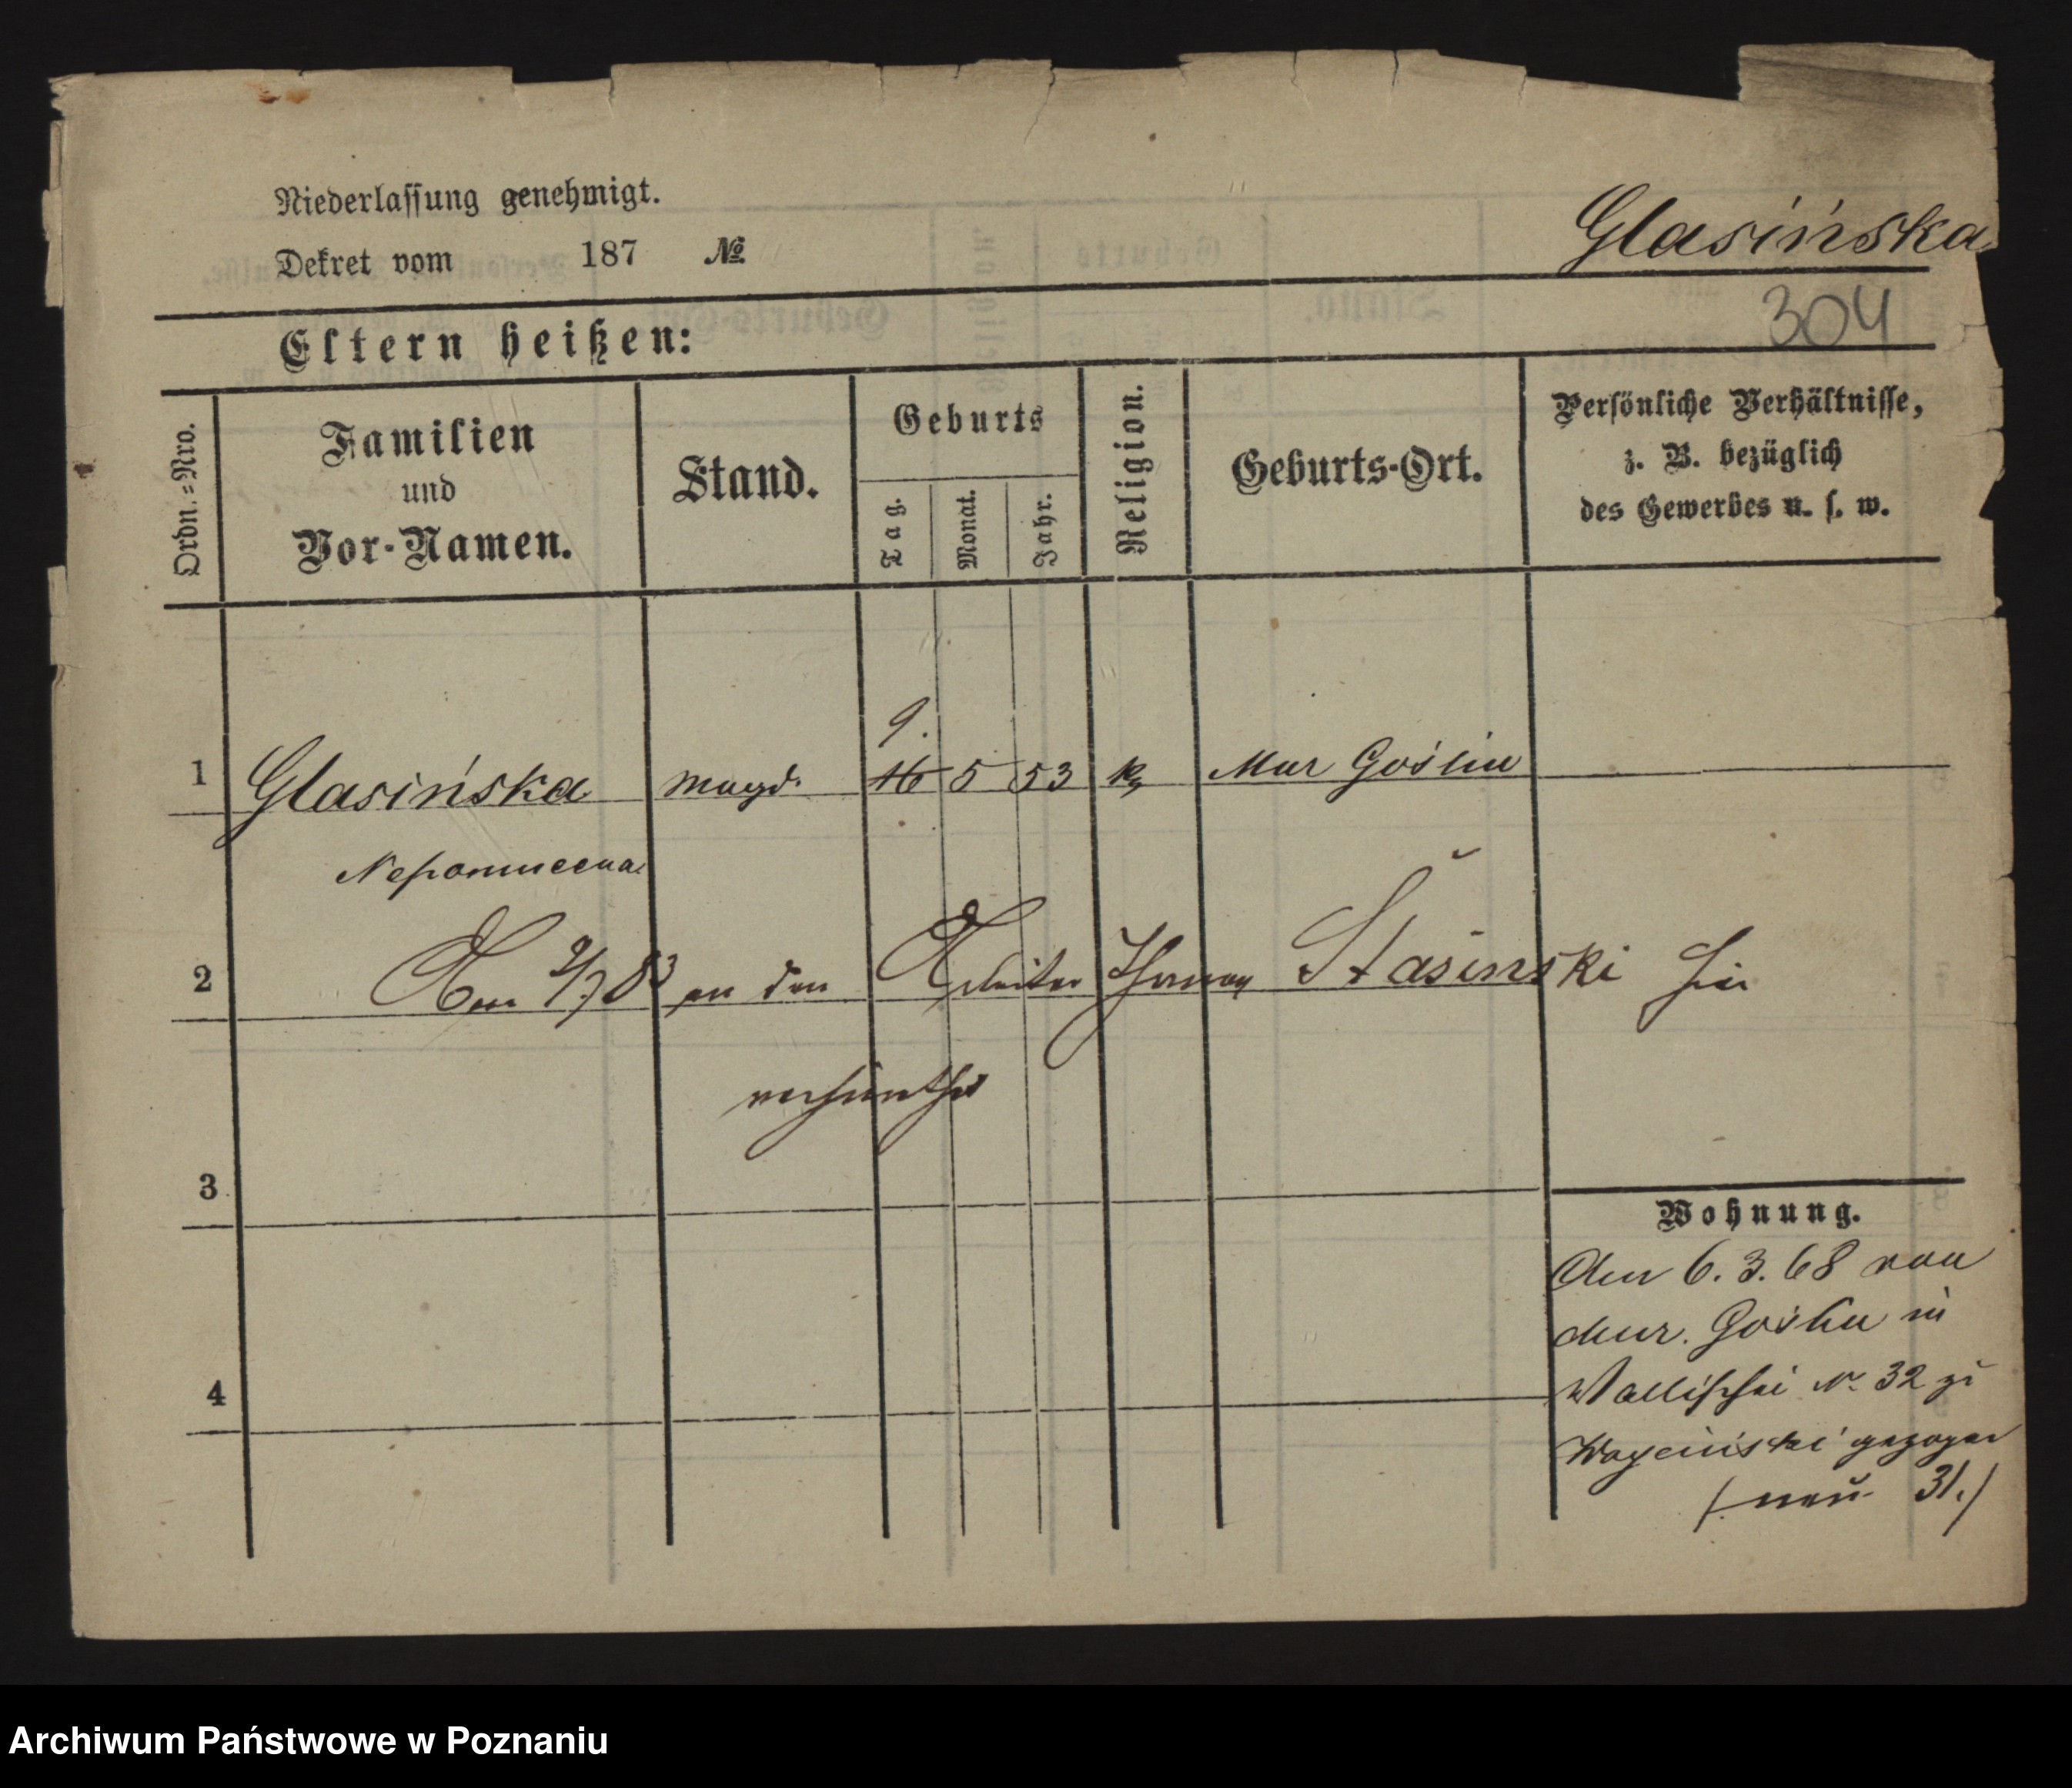 Niederlassung genehmigt.
Dekret vom 187 №
Glasińska
304
Eltern heißen:
Ordn.=Nro.
Familien
und
Vor-Namen.
Stand.
Geburts
Tag.
Monat.
Jahr.
Religion.
Geburts-Ort.
Persönliche Verhältnisse,
z. B. bezüglich
des Gewerbes u. s. w.
9.
1 Glasińska Magd. 16 5 53 k Mur Goślin
Nepomucena
2 Am 9/7 83 an den Arbeiter Thomas Stasinski hier
3
4
Wohnung.
Am 6. 3. 68 von
Mur. Goślin in
Wallischei N. 32 zu
gezogen
(neu 31.)
Archiwum Państwowe w Poznaniu